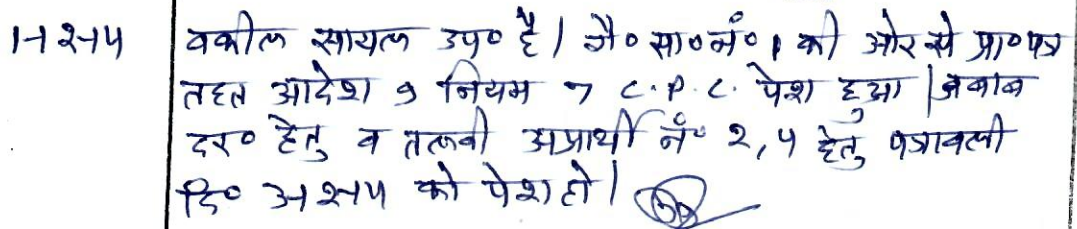 वकील सायल उप० है। गै० सा० नं० 1 की ओर से प्रा० पत्र
तहत आदेश 9 नियम 7 C.P.C. पेश हुआ। जबाब
दर० हेतु व तलबी अप्रार्थी नं० 2,4 हेतु पत्रावली
दि० को पेश हो।